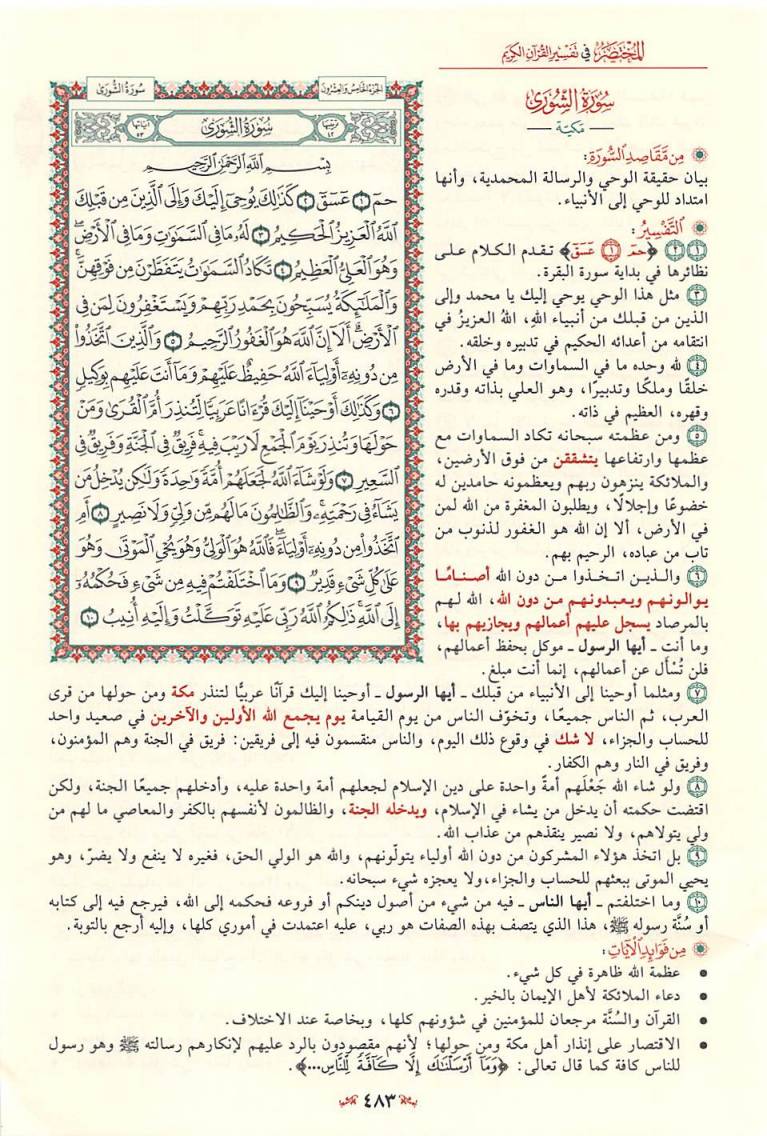 المختصر في تفسير القرآن الكريم
سورة الشورى
ـ مكية ـ
من مقاصد السورة:
بيان حقيقة الوحي والرسالة المحمدية، وأنها
امتداد للوحي إلى الأنبياء.
التفسير:
١ ٢ ﴿حمٓ ١ عٓسٓقٓ﴾ تقدم الكلام على
نظائرها في بداية سورة البقرة.
٣ مثل هذا الوحي يوحي إليك يا محمد وإلى
الذين من قبلك من أنبياء الله، اللهُ العزيز في
انتقامه من أعدائه الحكيم في تدبيره وخلقه.
٤ لله وحده ما في السماوات وما في الأرض
خلقًا وملكًا وتدبيرًا، وهو العلي بذاته وقدره
وقهره، العظيم في ذاته.
٥ ومن عظمته سبحانه تكاد السماوات مع
عظمها وارتفاعها يتشققن من فوق الأرضين،
والملائكة ينزهون ربهم ويعظمونه حامدين له
خضوعًا وإجلالًا، ويطلبون المغفرة من الله لمن
في الأرض، ألا إن الله هو الغفور لذنوب من
تاب من عباده، الرحيم بهم.
٦ والذين اتخذوا من دون الله أصنامًا
يوالونهم ويعبدونهم من دون الله، الله لهم
بالمرصاد يسجل عليهم أعمالهم ويجازيهم بها،
وما أنت ـ أيها الرسول ـ موكل بحفظ أعمالهم،
فلن تُسْأل عن أعمالهم، إنما أنت مبلغ.
سُورَةُ الشُّورَىٰ
الجزء الخامس والعشرون
ترتيبها ٤٢
سُورَةُ الشُّورَىٰ
آياتها ٥٣
بِسْمِ اللَّهِ الرَّحْمَٰنِ الرَّحِيمِ
حمٓ ١ عٓسٓقٓ ٢ كَذَٰلِكَ يُوحِىٓ إِلَيْكَ وَإِلَى ٱلَّذِينَ مِن قَبْلِكَ
ٱللَّهُ ٱلْعَزِيزُ ٱلْحَكِيمُ ٣ لَهُۥ مَا فِى ٱلسَّمَٰوَٰتِ وَمَا فِى ٱلْأَرْضِۖ
وَهُوَ ٱلْعَلِىُّ ٱلْعَظِيمُ ٤ تَكَادُ ٱلسَّمَٰوَٰتُ يَتَفَطَّرْنَ مِن فَوْقِهِنَّۚ
وَٱلْمَلَٰٓئِكَةُ يُسَبِّحُونَ بِحَمْدِ رَبِّهِمْ وَيَسْتَغْفِرُونَ لِمَن فِى
ٱلْأَرْضِۗ أَلَآ إِنَّ ٱللَّهَ هُوَ ٱلْغَفُورُ ٱلرَّحِيمُ ٥ وَٱلَّذِينَ ٱتَّخَذُوا۟
مِن دُونِهِۦٓ أَوْلِيَآءَ ٱللَّهُ حَفِيظٌ عَلَيْهِمْ وَمَآ أَنتَ عَلَيْهِم بِوَكِيلٍ
٦ وَكَذَٰلِكَ أَوْحَيْنَآ إِلَيْكَ قُرْءَانًا عَرَبِيًّا لِّتُنذِرَ أُمَّ ٱلْقُرَىٰ وَمَنْ
حَوْلَهَا وَتُنذِرَ يَوْمَ ٱلْجَمْعِ لَا رَيْبَ فِيهِۚ فَرِيقٌ فِى ٱلْجَنَّةِ وَفَرِيقٌ فِى
ٱلسَّعِيرِ ٧ وَلَوْ شَآءَ ٱللَّهُ لَجَعَلَهُمْ أُمَّةً وَٰحِدَةً وَلَٰكِن يُدْخِلُ مَن
يَشَآءُ فِى رَحْمَتِهِۦۚ وَٱلظَّٰلِمُونَ مَا لَهُم مِّن وَلِىٍّ وَلَا نَصِيرٍ ٨ أَمِ
ٱتَّخَذُوا۟ مِن دُونِهِۦٓ أَوْلِيَآءَۖ فَٱللَّهُ هُوَ ٱلْوَلِىُّ وَهُوَ يُحْىِ ٱلْمَوْتَىٰ وَهُوَ
عَلَىٰ كُلِّ شَىْءٍ قَدِيرٌ ٩ وَمَا ٱخْتَلَفْتُمْ فِيهِ مِن شَىْءٍ فَحُكْمُهُۥٓ
إِلَى ٱللَّهِۚ ذَٰلِكُمُ ٱللَّهُ رَبِّى عَلَيْهِ تَوَكَّلْتُ وَإِلَيْهِ أُنِيبُ ١٠
٧ ومثلما أوحينا إلى الأنبياء من قبلك ـ أيها الرسول ـ أوحينا إليك قرآنًا عربيًّا لتنذر مكة ومن حولها من قرى
العرب، ثم الناس جميعًا، وتخوّف الناس من يوم القيامة يوم يجمع الله الأولين والآخرين في صعيد واحد
للحساب والجزاء، لا شك في وقوع ذلك اليوم، والناس منقسمون فيه إلى فريقين: فريق في الجنة وهم المؤمنون،
وفريق في النار وهم الكفار.
٨ ولو شاء الله جَعْلَهم أمةً واحدة على دين الإسلام لجعلهم أمة واحدة عليه، وأدخلهم جميعًا الجنة، ولكن
اقتضت حكمته أن يدخل من يشاء في الإسلام، ويدخله الجنة، والظالمون لأنفسهم بالكفر والمعاصي ما لهم من
ولي يتولاهم، ولا نصير ينقذهم من عذاب الله.
٩ بل اتخذ هؤلاء المشركون من دون الله أولياء يتولّونهم، والله هو الولي الحق، فغيره لا ينفع ولا يضرّ، وهو
يحيي الموتى ببعثهم للحساب والجزاء،ولا يعجزه شيء سبحانه.
١٠ وما اختلفتم ـ أيها الناس ـ فيه من شيء من أصول دينكم أو فروعه فحكمه إلى الله، فيرجع فيه إلى كتابه
أو سُنَّة رسوله ﷺ، هذا الذي يتصف بهذه الصفات هو ربي، عليه اعتمدت في أموري كلها، وإليه أرجع بالتوبة.
من فوائد الآيات:
• عظمة الله ظاهرة في كل شيء.
• دعاء الملائكة لأهل الإيمان بالخير.
• القرآن والسُنَّة مرجعان للمؤمنين في شؤونهم كلها، وبخاصة عند الاختلاف.
• الاقتصار على إنذار أهل مكة ومن حولها؛ لأنهم مقصودون بالرد عليهم لإنكارهم رسالته ﷺ وهو رسول
للناس كافة كما قال تعالى: ﴿وَمَآ أَرْسَلْنَٰكَ إِلَّا كَآفَّةً لِّلنَّاسِ...﴾.
٤٨٣